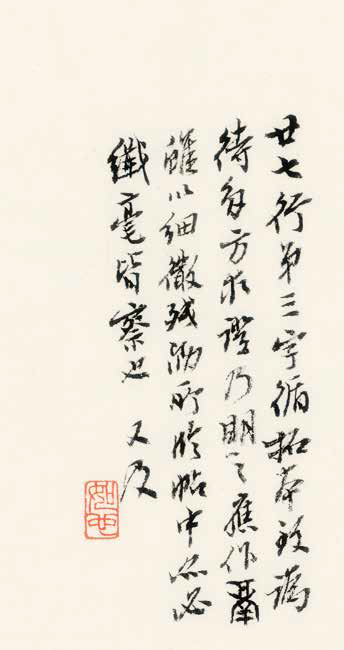 廿七行第三字循拓本致譌
待多方求證乃明之應作
雖以細微殘泐所臨帖中亦必
纖毫皆察也 又及